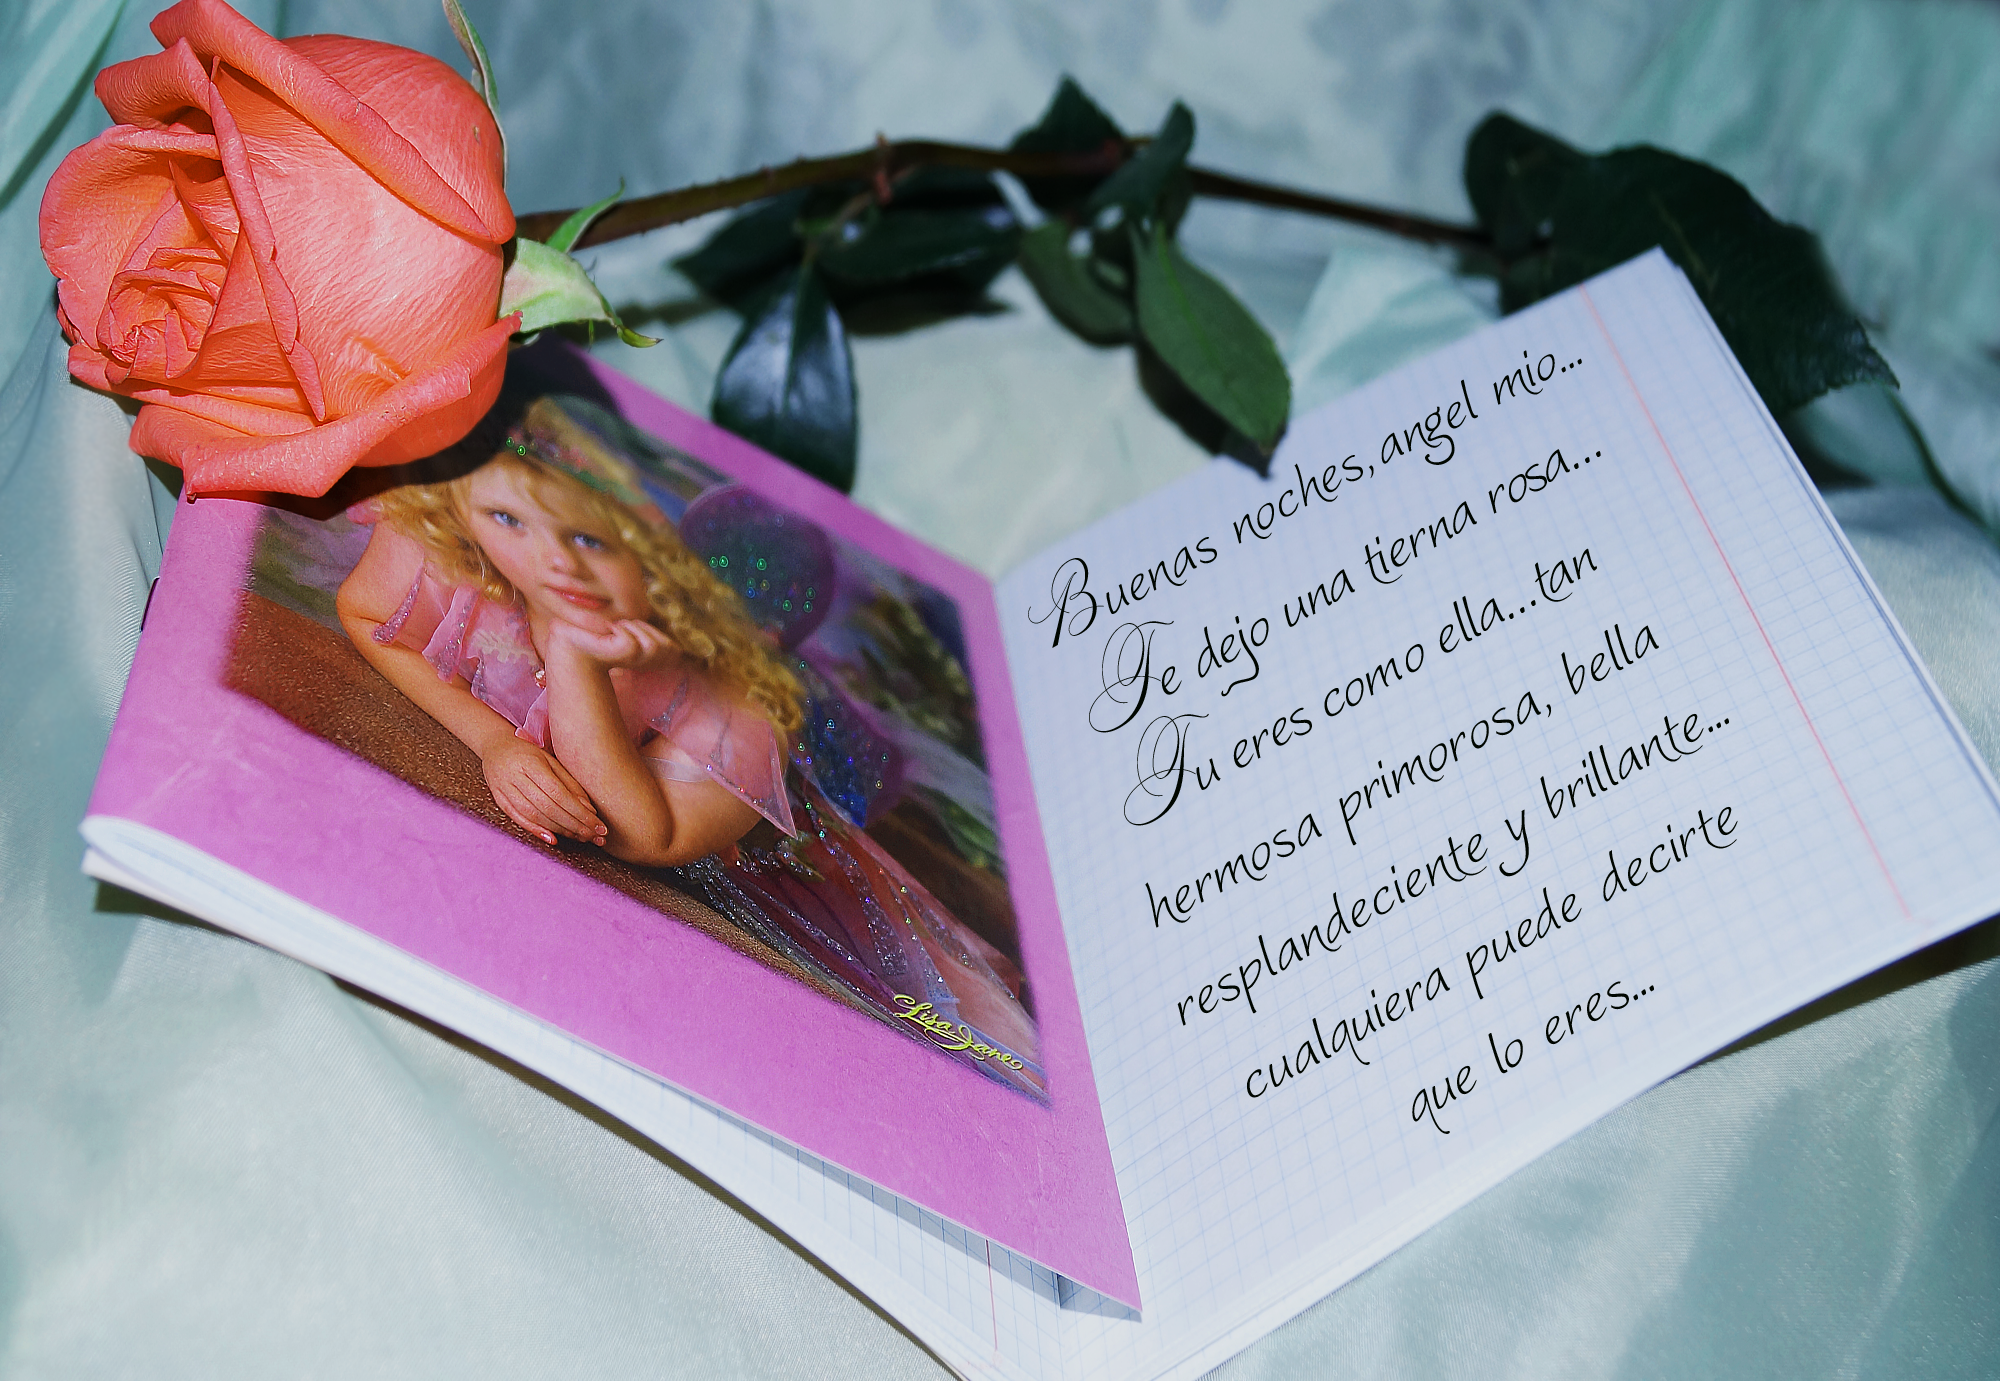 Lisa Jane
Buenas noches, angel mio...
Te dejo una tierna rosa...
Tu eres como ella...tan
hermosa primorosa, bella
resplandeciente y brillante...
cualquiera puede decirte
que lo eres...